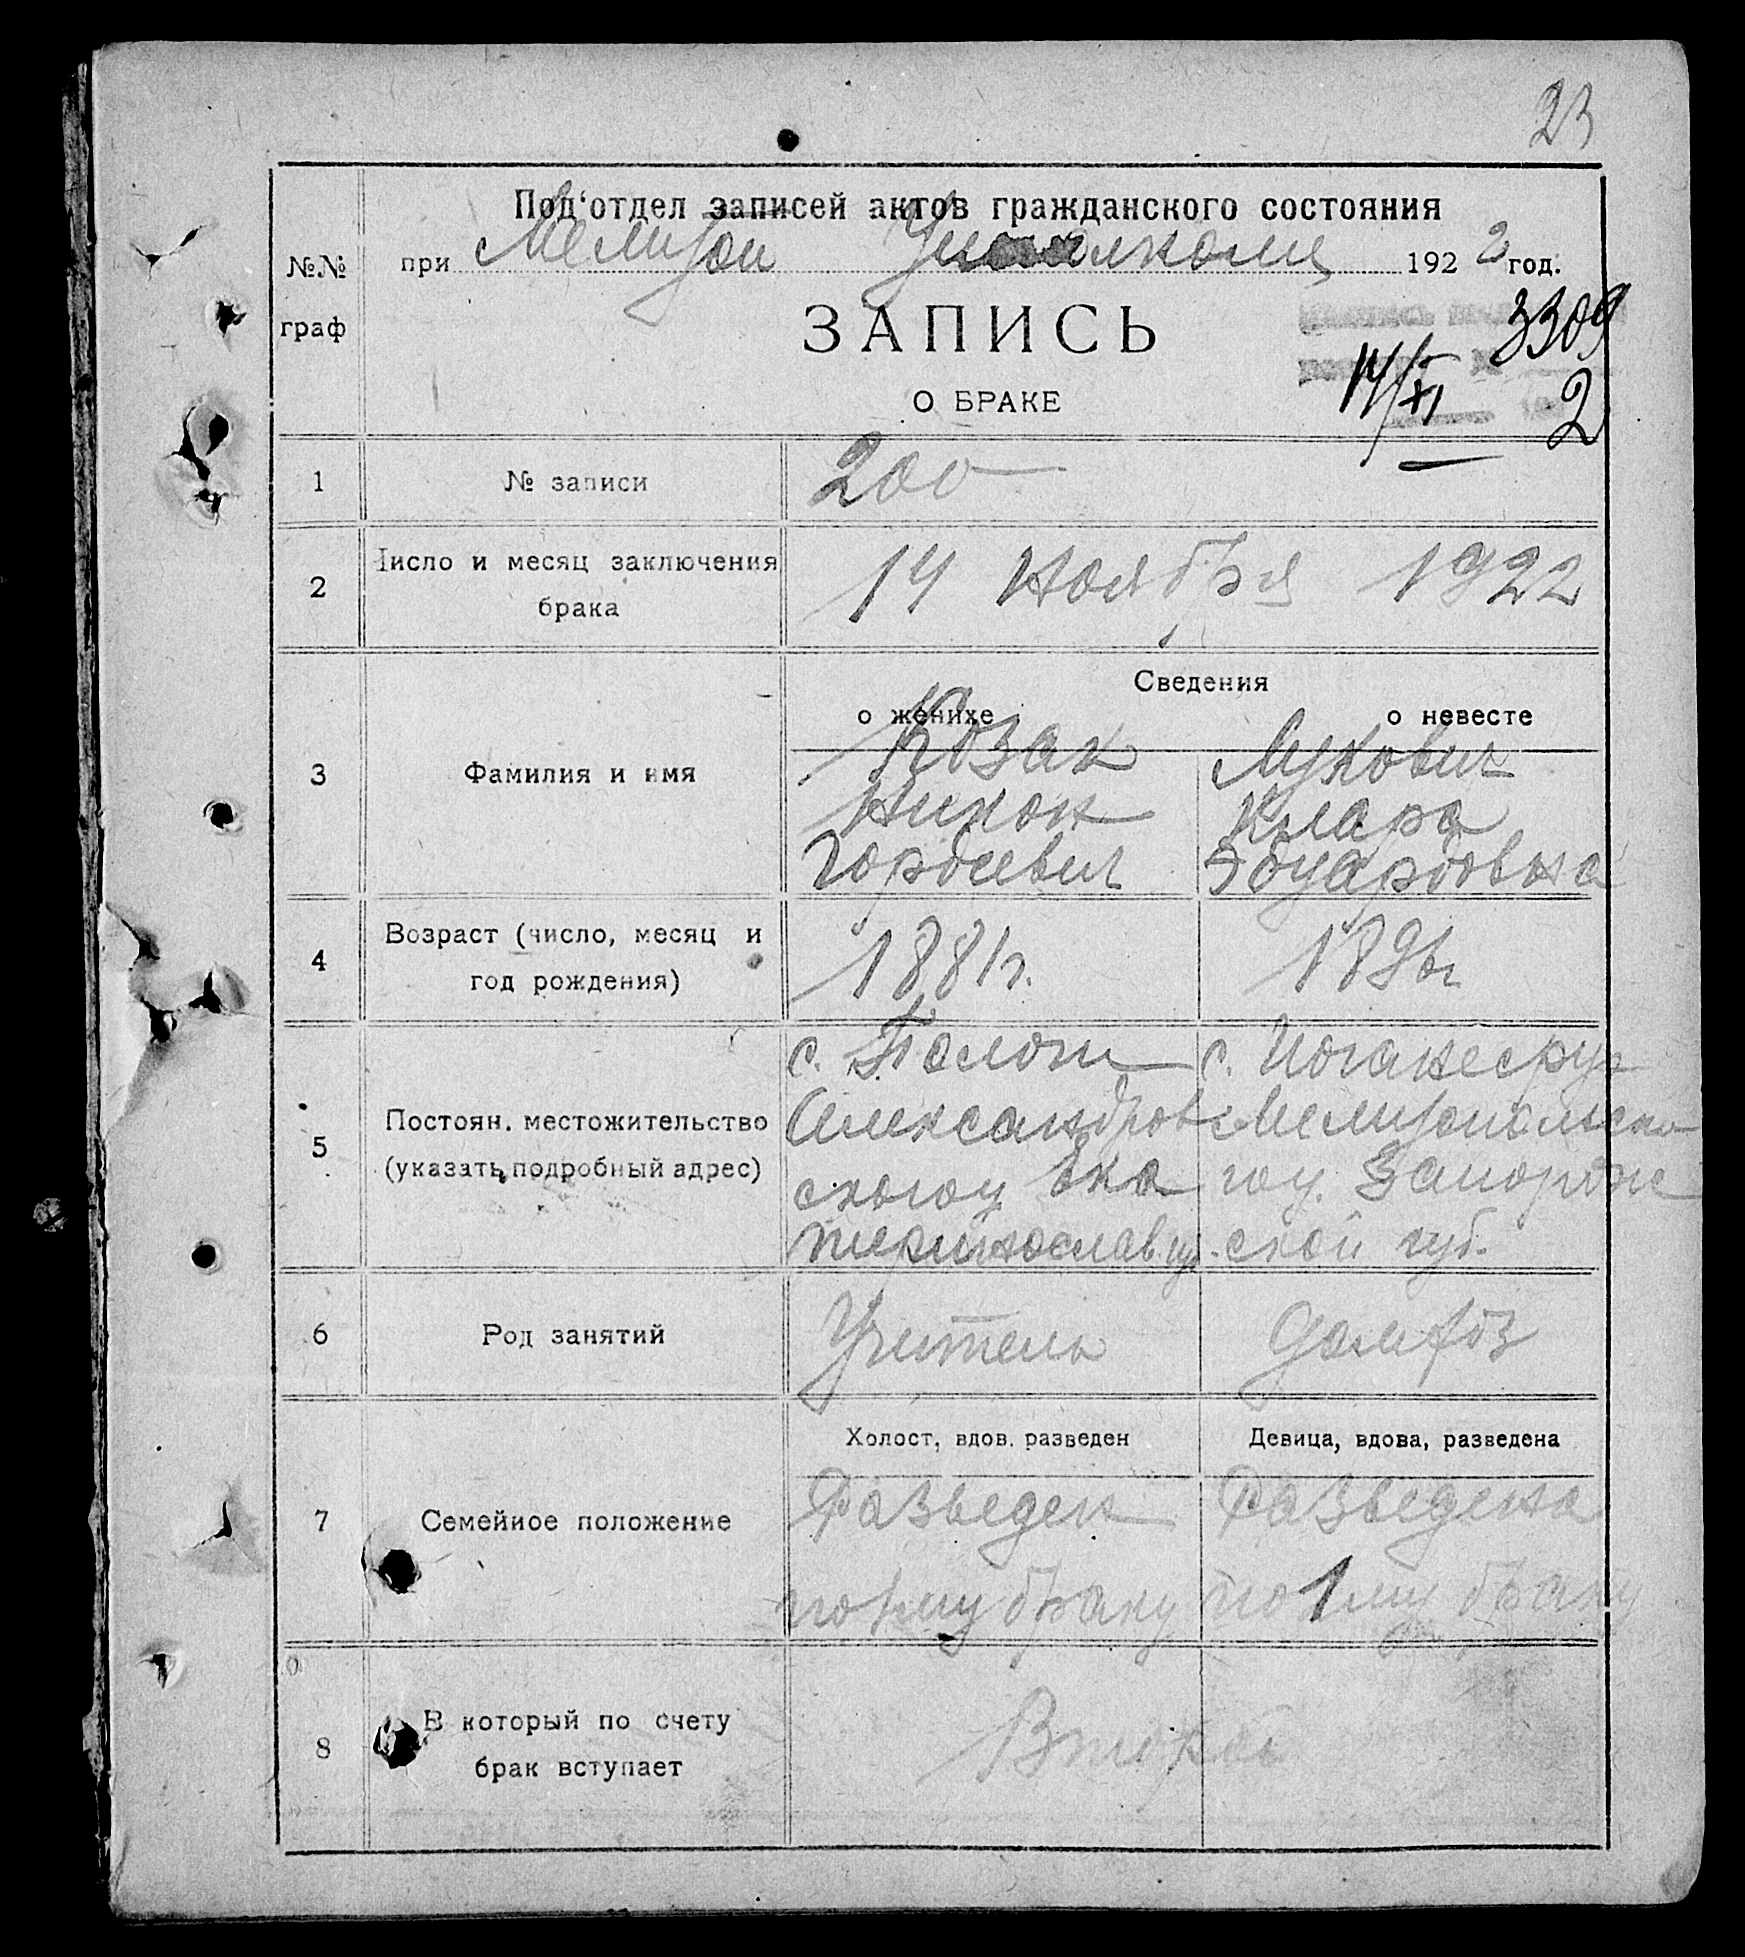 23
Под‘отдел записей актов гражданского состояния
№№ граф
при Мелитоп 192 2 год.
ЗАПИСЬ
3309
О БРАКЕ
14/XI 2
1 № записи 200
2 Число и месяц заключения брака 14 Ноября 1922
Сведения
о женихе о невесте
3 Фамилия и имя
Козак
Никон
Гордеевич
Клара
Эдуардовна
4 Возраст (число, месяц и год рождения) 1881г. 189
5 Постоян. местожительство (указать подробный адрес)
с. Пологи
Александров
ского у Ека
теринослав. гу.
с. Иоганесру
Мелитопольско
го у. Запорож
ской губ.
6 Род занятий Учитель
Холост, вдов. разведен Девица, вдова, разведена
7 Семейное положение
Разведен Разведена
по 1му браку по 1му браку
8 В который по счету брак вступает Второй